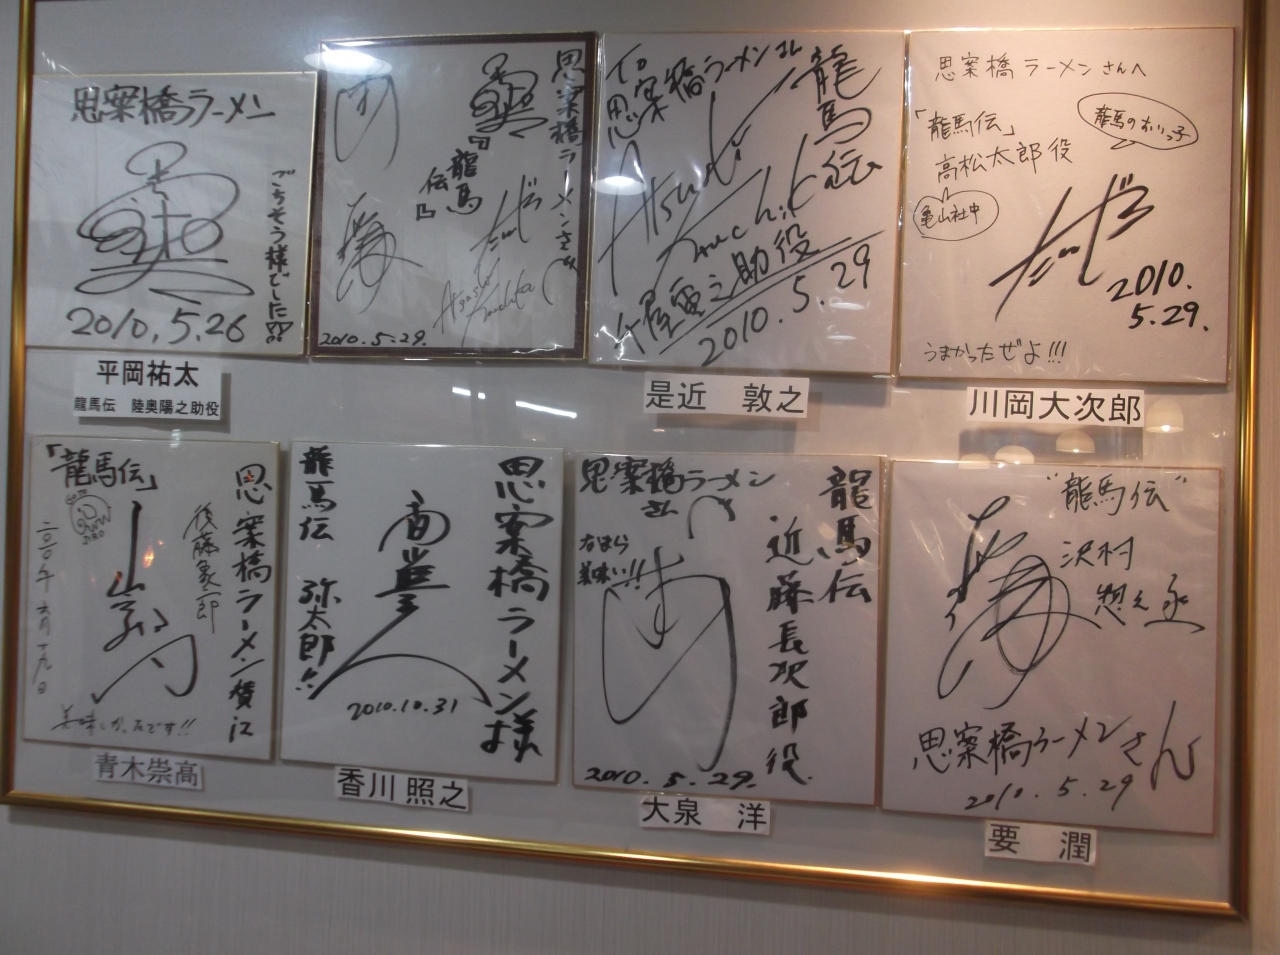 思案橋ラーメン
ごちそう様でした!!
2010.5.26
平岡祐太
龍馬伝　陸奥陽之助役
思案橋ラーメンさん
『龍馬伝』
2010.5.29.
To
思案橋ラーメンさん
龍馬伝
Atsuyuki
Korechika
屋雲之助役
2010.5.29
是近　敦之
思案橋ラーメンさんへ
「龍馬伝」
龍馬のおいっ子
高松太郎役
亀山社中
2010.
5.29.
うまかったぜよ!!!
川岡大次郎
「龍馬伝」
思案橋ラーメン賛江
後藤象二郎
二〇一〇年 六月十九日
美味しかったです!!
青木崇高
龍馬伝 弥太郎
思案橋ラーメン様
2010.10.31
香川照之
思案橋ラーメン
さん
龍馬伝
近藤長次郎役
なまら
美味い!!
2010.5.29.
大泉　洋
"龍馬伝"
沢村
惣之丞
思案橋ラーメンさん
2010.5.29
要　潤